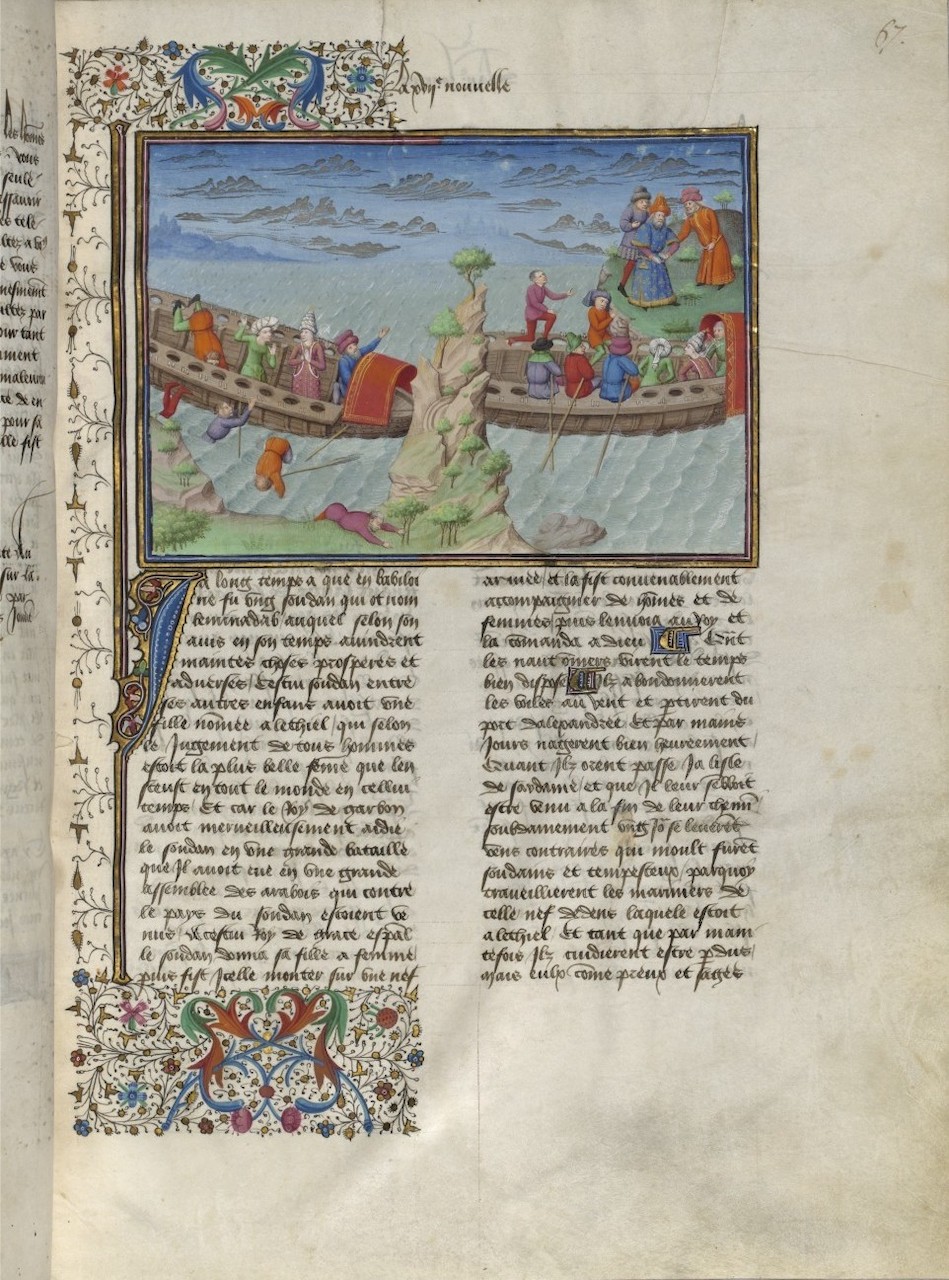 67.
La xvijᵉ nouvelle
Ja long temps a que en babiloi
ne fu vng soudan qui ot nom
beminadab auquel selon son
auis en son temps aduindrent
maintes choses prosperes et
aduerses / Cestui soudan entre
ses autres enfans auoit vne
fille nōmee alethiel / qui selon
le Jugement de tous hommes
estoit la plus belle fēme que len
sceust en tout le monde en cellui
temps / Et car le Roy de garbon
auoit merueilleusement aidie
le soudan en vne grande bataille
que Jl auoit eue en vne grande
assemblee des arabois qui contre
le pays du soudan estoient ve
nus / A cestui Roy de grace espal
le soudan donna sa fille a femme
puis fist Jcelle monter sur vne nef
armee / et la fist conuenablement
accompaignier de hōmes et de
femmes puis lenuoia au Roy et
la cōmanda a dieu Quāt
les nautōniers virent le temps
bien dispose Jlz abandonnerent
les voiles au vent et ꝑtirent du
port dalexandree Et par mains
Jours nagerent bien heureement /
Quant Jlz orent passe Ja lisle
de sardaine / et que Jl leur sēbloit
estre venu a la fin de leur chemī
soubdainement vng Jor se leuerēt
vens contraires qui moult furēt
soudains et tempesteux / parquoy
traueillierent les mariniers de
celle nef dedens laquele estoit
alethiel Et tant que par main
tefois Jlz cuidierent estre ꝑdus /
mais eulx cōme preux et sages